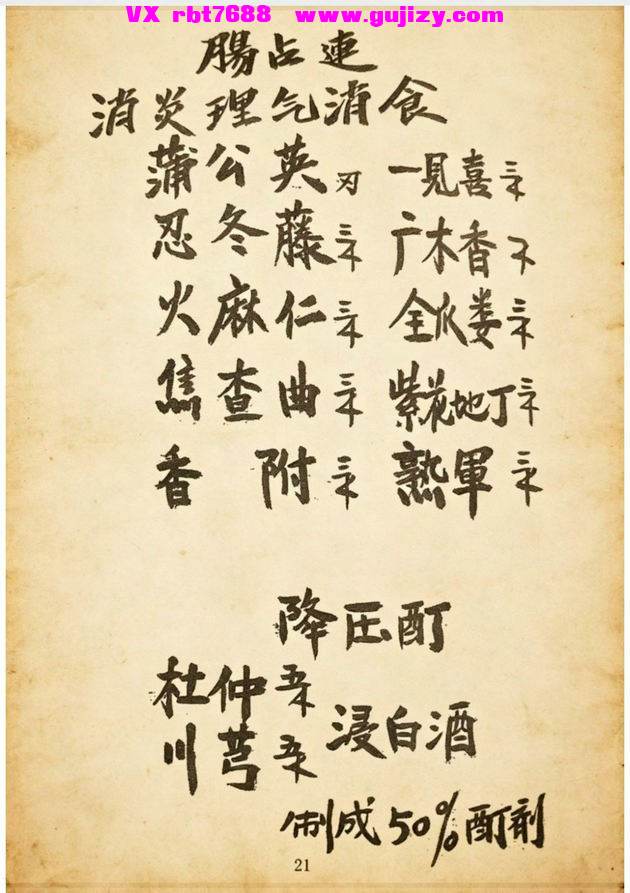 VX rbt7688 www.gujizy.com
腸占連
消炎理气消食
蒲公英刃 一見喜三不
忍冬藤三不 广木香不
火麻仁三不 全爪娄三不
焦查曲三不 紫花地丁三不
香附三不 熟軍三不
降压酊
杜仲
浸白酒
川芎
制成50%酊剤
21